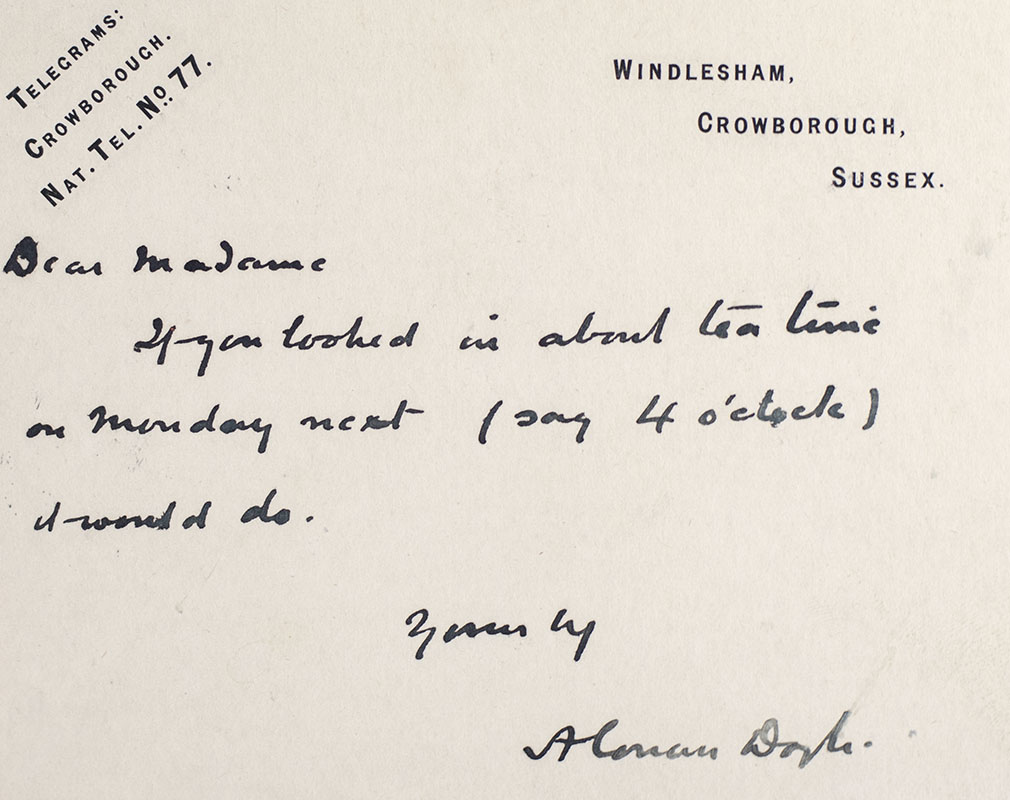 TELEGRAMS:
CROWBOROUGH.
NAT. TEL. No. 77.
WINDLESHAM,
CROWBOROUGH,
SUSSEX.
Dear Madame
If you looked in about tea time
on Monday next (say 4 o'clock)
it would do.
Yours
A Conan Doyle.